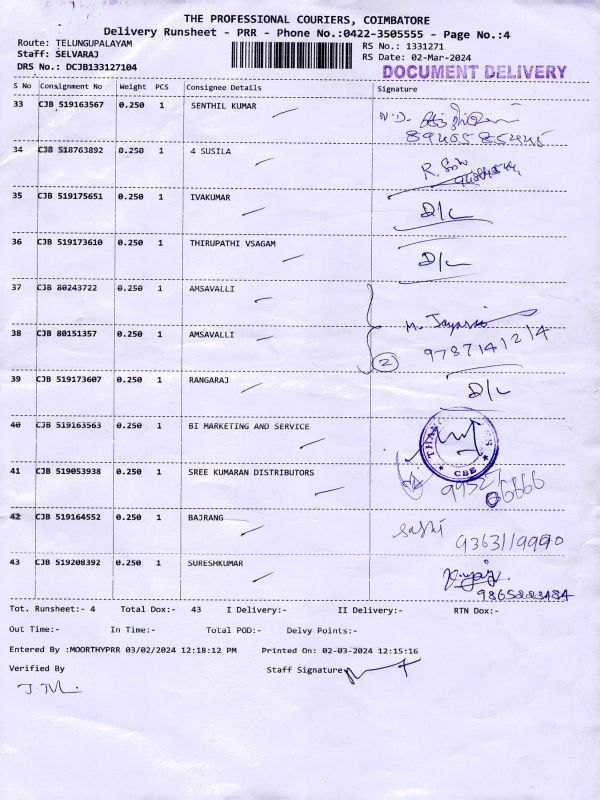 THE PROFESSIONAL COURIERS, COIMBATORE
Delivery Runsheet - PRR - Phone No.:0422-3505555 - Page No.:4
Route: TELUNGUPALAYAM
RS No.: 1331271
Staff: SELVARAJ
RS Date: 02-Mar-2024
DRS No.: DCJB133127104
DOCUMENT DELIVERY
S No Consignment No Weight PCS Consignee Details Signature
33 CJB 519163567 0.250 1 SENTHIL KUMAR
34 CJB 518763892 0.250 1 4 SUSILA
35 CJB 519175651 0.250 1 IVAKUMAR D/L
36 CJB 519173610 0.250 1 THIRUPATHI VSAGAM D/L
37 CJB 80243722 0.250 1 AMSAVALLI
38 CJB 80151357 0.250 1 AMSAVALLI
9787141214
2
39 CJB 519173607 0.250 1 RANGARAJ D/L
40 CJB 519163563 0.250 1 BI MARKETING AND SERVICE
CBE
41 CJB 519053938 0.250 1 SREE KUMARAN DISTRIBUTORS
42 CJB 519164552 0.250 1 BAJRANG Sashi
9363119990
43 CJB 519208392 0.250 1 SURESHKUMAR
9865223484
Tot. Runsheet:- 4 Total Dox:- 43 I Delivery:- II Delivery:- RTN Dox:-
Out Time:- In Time:- Total POD:- Delvy Points:-
Entered By :MOORTHYPRR 03/02/2024 12:18:12 PM Printed On: 02-03-2024 12:15:16
Verified By Staff Signature